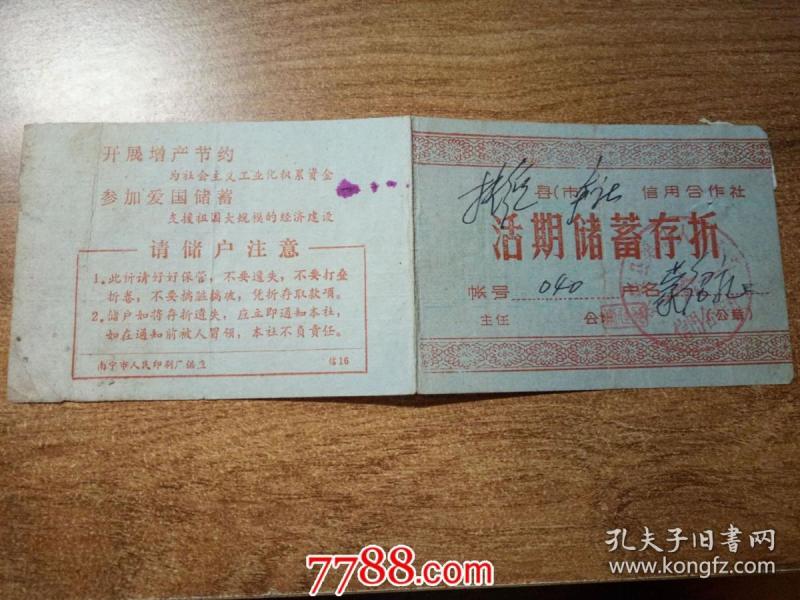 开展增产节约
为社会主义工业化积累资金
参加爱国储蓄
支援祖国大规模的经济建设
请储户注意
1. 此折请好好保管，不要遗失，不要打叠
折卷，不要搞脏搞破，凭折存取款项。
2. 储户如将存折遗失，应立即通知本社，
如在通知前被人冒领，本社不负责任。
南宁市人民印刷厂 信16
县(市) 信用合作社
活期储蓄存折
帐号 040 户名
主任 (公章)
7788.com
孔夫子旧书网
www.kongfz.com